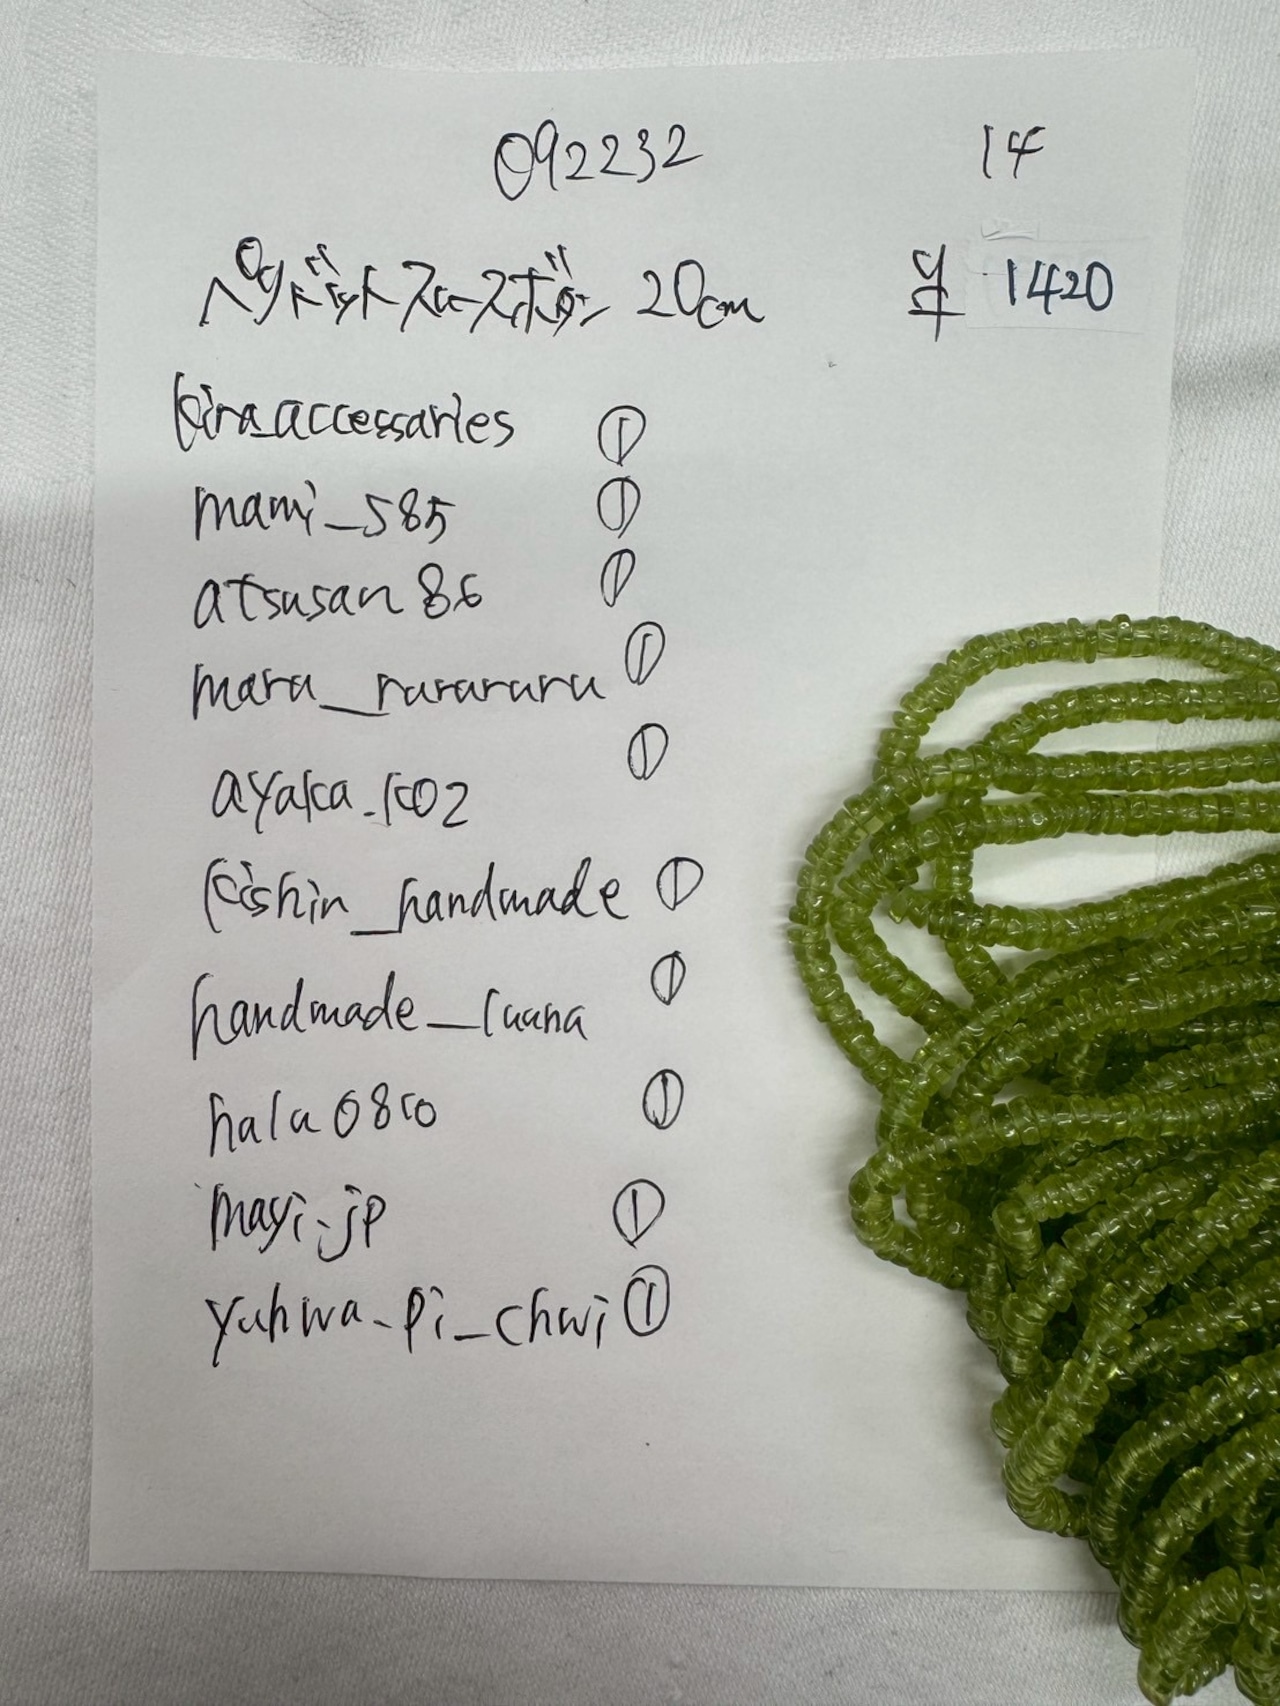 092232 14
ペリドットスムースボタン 20cm ¥ 1420
kira_accessaries ①
mami_585 ①
atsusan86 ①
maru_rurururu ①
ayaka.k02 ①
kishin_handmade ①
handmade_luana ①
halu0810 ①
mayi.jp ①
yuhwa_pi_chwi ①